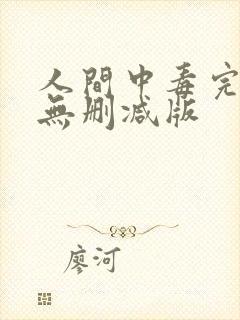 人間中毒完
無刪减版
廖河